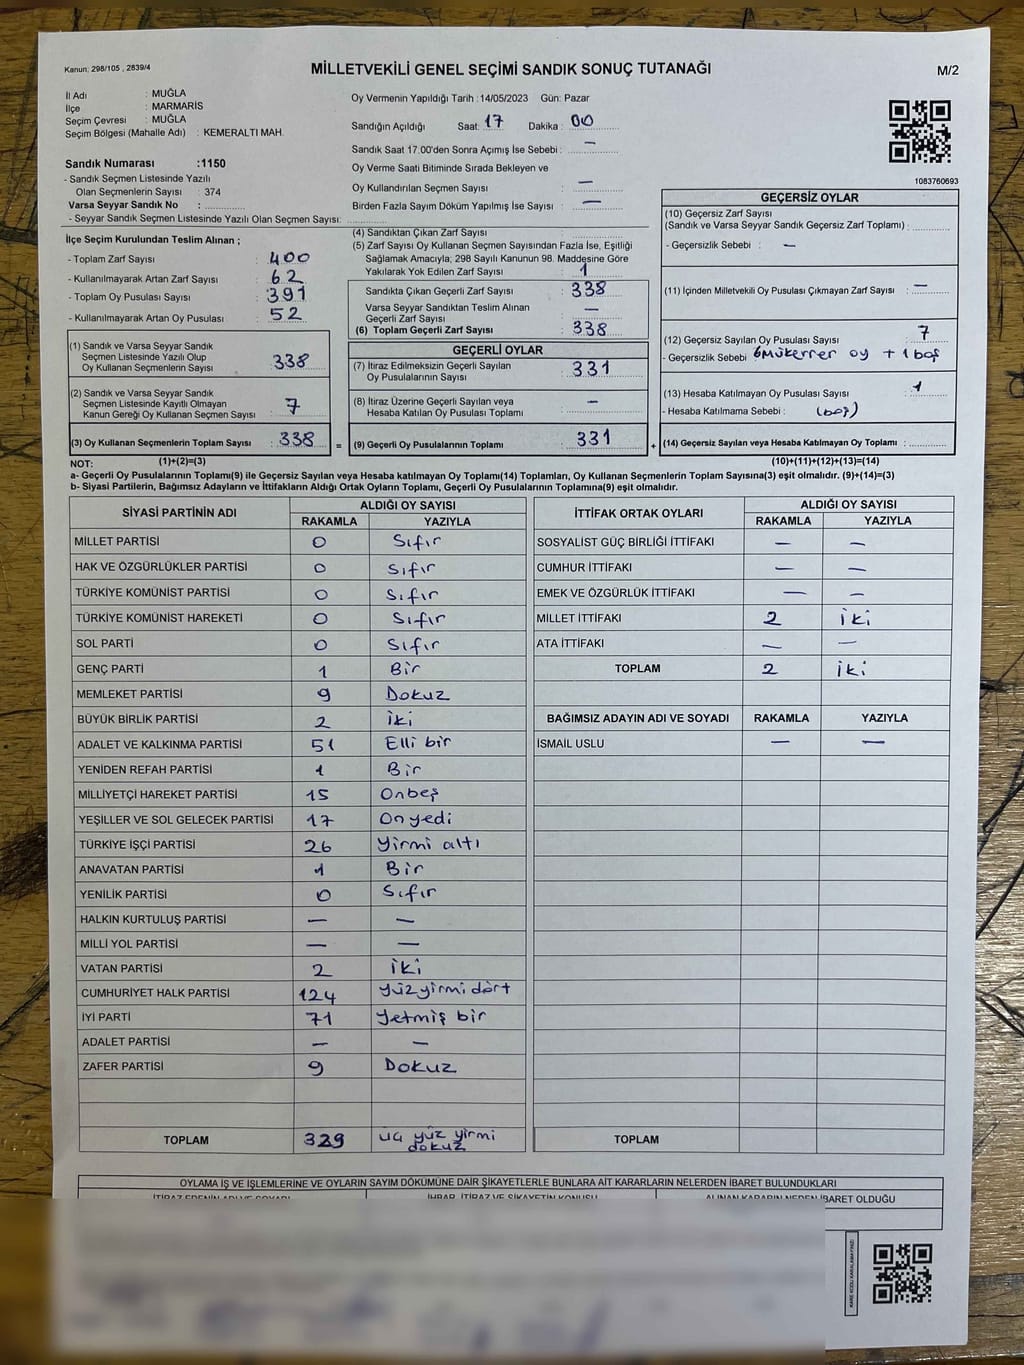 Kanun: 298/105 , 2839/4
MİLLETVEKİLİ GENEL SEÇİMİ SANDIK SONUÇ TUTANAĞI
M/2
İl Adı : MUĞLA
İlçe : MARMARİS
Seçim Çevresi : MUĞLA
Seçim Bölgesi (Mahalle Adı) : KEMERALTI MAH.
Sandık Numarası :1150
- Sandık Seçmen Listesinde Yazılı
Olan Seçmenlerin Sayısı : 374
Varsa Seyyar Sandık No :
- Seyyar Sandık Seçmen Listesinde Yazılı Olan Seçmen Sayısı:
Oy Vermenin Yapıldığı Tarih :14/05/2023 Gün: Pazar
Sandığın Açıldığı Saat: 17 Dakika : 00
Sandık Saat 17.00'den Sonra Açımış İse Sebebi : —
Oy Verme Saati Bitiminde Sırada Bekleyen ve
Oy Kullandırılan Seçmen Sayısı : —
Birden Fazla Sayım Döküm Yapılmış İse Sayısı : —
1083760693
İlçe Seçim Kurulundan Teslim Alınan ;
- Toplam Zarf Sayısı : 400
- Kullanılmayarak Artan Zarf Sayısı : 62
- Toplam Oy Pusulası Sayısı : 391
- Kullanılmayarak Artan Oy Pusulası : 52
(1) Sandık ve Varsa Seyyar Sandık
Seçmen Listesinde Yazılı Olup
Oy Kullanan Seçmenlerin Sayısı : 338
(2) Sandık ve Varsa Seyyar Sandık
Seçmen Listesinde Kayıtlı Olmayan
Kanun Gereği Oy Kullanan Seçmen Sayısı : 7
(3) Oy Kullanan Seçmenlerin Toplam Sayısı : 338 =
(1)+(2)=(3)
(4) Sandıktan Çıkan Zarf Sayısı :
(5) Zarf Sayısı Oy Kullanan Seçmen Sayısından Fazla İse, Eşitliği
Sağlamak Amacıyla; 298 Sayılı Kanunun 98. Maddesine Göre
Yakılarak Yok Edilen Zarf Sayısı : 1
Sandıkta Çıkan Geçerli Zarf Sayısı : 338
Varsa Seyyar Sandıktan Teslim Alınan
Geçerli Zarf Sayısı : —
(6) Toplam Geçerli Zarf Sayısı : 338
GEÇERLİ OYLAR
(7) İtiraz Edilmeksizin Geçerli Sayılan
Oy Pusulalarının Sayısı : 331
(8) İtiraz Üzerine Geçerli Sayılan veya
Hesaba Katılan Oy Pusulası Toplamı : —
(9) Geçerli Oy Pusulalarının Toplamı : 331 +
GEÇERSİZ OYLAR
(10) Geçersiz Zarf Sayısı
(Sandık ve Varsa Seyyar Sandık Geçersiz Zarf Toplamı) :
- Geçersizlik Sebebi : —
(11) İçinden Milletvekili Oy Pusulası Çıkmayan Zarf Sayısı : —
(12) Geçersiz Sayılan Oy Pusulası Sayısı : 7
- Geçersizlik Sebebi 6 mükerrer oy + 1 boş
(13) Hesaba Katılmayan Oy Pusulası Sayısı : 1
- Hesaba Katılmama Sebebi : (boş)
(14) Geçersiz Sayılan veya Hesaba Katılmayan Oy Toplamı :
(10)+(11)+(12)+(13)=(14)
NOT:
a- Geçerli Oy Pusulalarının Toplamı(9) ile Geçersiz Sayılan veya Hesaba katılmayan Oy Toplamı(14) Toplamları, Oy Kullanan Seçmenlerin Toplam Sayısına(3) eşit olmalıdır. (9)+(14)=(3)
b- Siyasi Partilerin, Bağımsız Adayların ve İttifakların Aldığı Ortak Oyların Toplamı, Geçerli Oy Pusulalarının Toplamına(9) eşit olmalıdır.
SİYASİ PARTİNİN ADI ALDIĞI OY SAYISI
RAKAMLA YAZIYLA
MİLLET PARTİSİ 0 Sıfır
HAK VE ÖZGÜRLÜKLER PARTİSİ 0 Sıfır
TÜRKİYE KOMÜNİST PARTİSİ 0 Sıfır
TÜRKİYE KOMÜNİST HAREKETİ 0 Sıfır
SOL PARTİ 0 Sıfır
GENÇ PARTİ 1 Bir
MEMLEKET PARTİSİ 9 Dokuz
BÜYÜK BİRLİK PARTİSİ 2 İki
ADALET VE KALKINMA PARTİSİ 51 Elli bir
YENİDEN REFAH PARTİSİ 1 Bir
MİLLİYETÇİ HAREKET PARTİSİ 15 Onbeş
YEŞİLLER VE SOL GELECEK PARTİSİ 17 On yedi
TÜRKİYE İŞÇİ PARTİSİ 26 Yirmi altı
ANAVATAN PARTİSİ 1 Bir
YENİLİK PARTİSİ 0 Sıfır
HALKIN KURTULUŞ PARTİSİ — —
MİLLİ YOL PARTİSİ — —
VATAN PARTİSİ 2 İki
CUMHURİYET HALK PARTİSİ 124 Yüz yirmi dört
İYİ PARTİ 71 Yetmiş bir
ADALET PARTİSİ — —
ZAFER PARTİSİ 9 Dokuz
TOPLAM 329 üç yüz yirmi
dokuz
İTTİFAK ORTAK OYLARI ALDIĞI OY SAYISI
RAKAMLA YAZIYLA
SOSYALİST GÜÇ BİRLİĞİ İTTİFAKI — —
CUMHUR İTTİFAKI — —
EMEK VE ÖZGÜRLÜK İTTİFAKI — —
MİLLET İTTİFAKI 2 İki
ATA İTTİFAKI — —
TOPLAM 2 İki
BAĞIMSIZ ADAYIN ADI VE SOYADI RAKAMLA YAZIYLA
İSMAİL USLU — —
TOPLAM
OYLAMA İŞ VE İŞLEMLERİNE VE OYLARIN SAYIM DÖKÜMÜNE DAİR ŞİKAYETLERLE BUNLARA AİT KARARLARIN NELERDEN İBARET BULUNDUKLARI
İTİRAZ EDENİN ADI VE SOYADI İHBAR, İTİRAZ VE ŞİKAYETİN KONUSU ALINAN KARARIN NEDEN İBARET OLDUĞU
KARE KODU KARALAMAYINIZ!